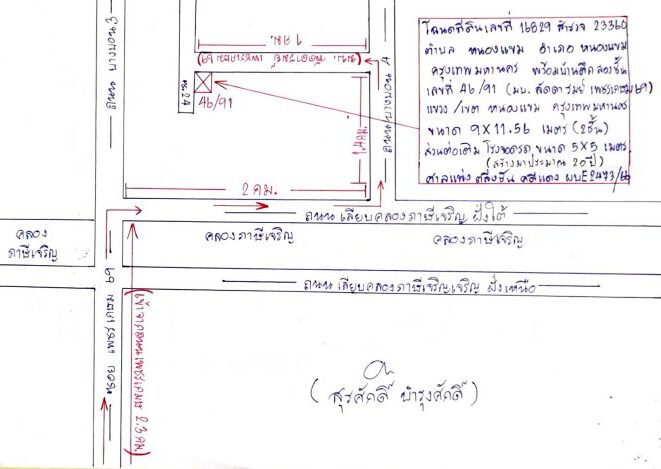 โฉนดที่ดินเลขที่ 16829 สำรวจ 23360
ตำบล หนองแขม อำเภอ หนองแขม
กรุงเทพมหานคร พร้อมบ้านตึกสองชั้น
เลขที่ 46/91 (มบ. ลัดดารมย์ เพชรเกษม 69)
แขวง/เขต หนองแขม กรุงเทพมหานคร
ขนาด 9X11.56 เมตร (2ชั้น)
ส่วนต่อเติม โรงจอดรถ ขนาด 5X5 เมตร
(สร้างมาประมาณ 20 ปี)
ศาลแพ่งตลิ่งชัน คดีแดง ผบE2473/66
1 กม.
ซ.24
46/91
1.4 กม.
2 กม.
ถนน เลียบคลองภาษีเจริญ ฝั่งใต้
คลอง
ภาษีเจริญ
คลองภาษีเจริญ
คลองภาษีเจริญ
ถนน เลียบคลองภาษีเจริญเจริญ ฝั่งเหนือ
ซอย เพชรเกษม 69
(เข้าจากถนนเพชรเกษม 2.3 กม.)
(สุรศักดิ์ บำรุงศักดิ์)